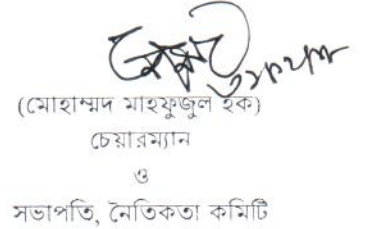 (মোহাম্মদ মাহফুজুল হক)
চেয়ারম্যান
ও
সভাপতি, নৈতিকতা কমিটি